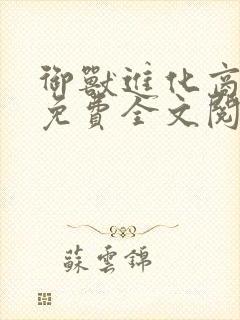 御獸進化商
免費全文閱
蘇雲錦